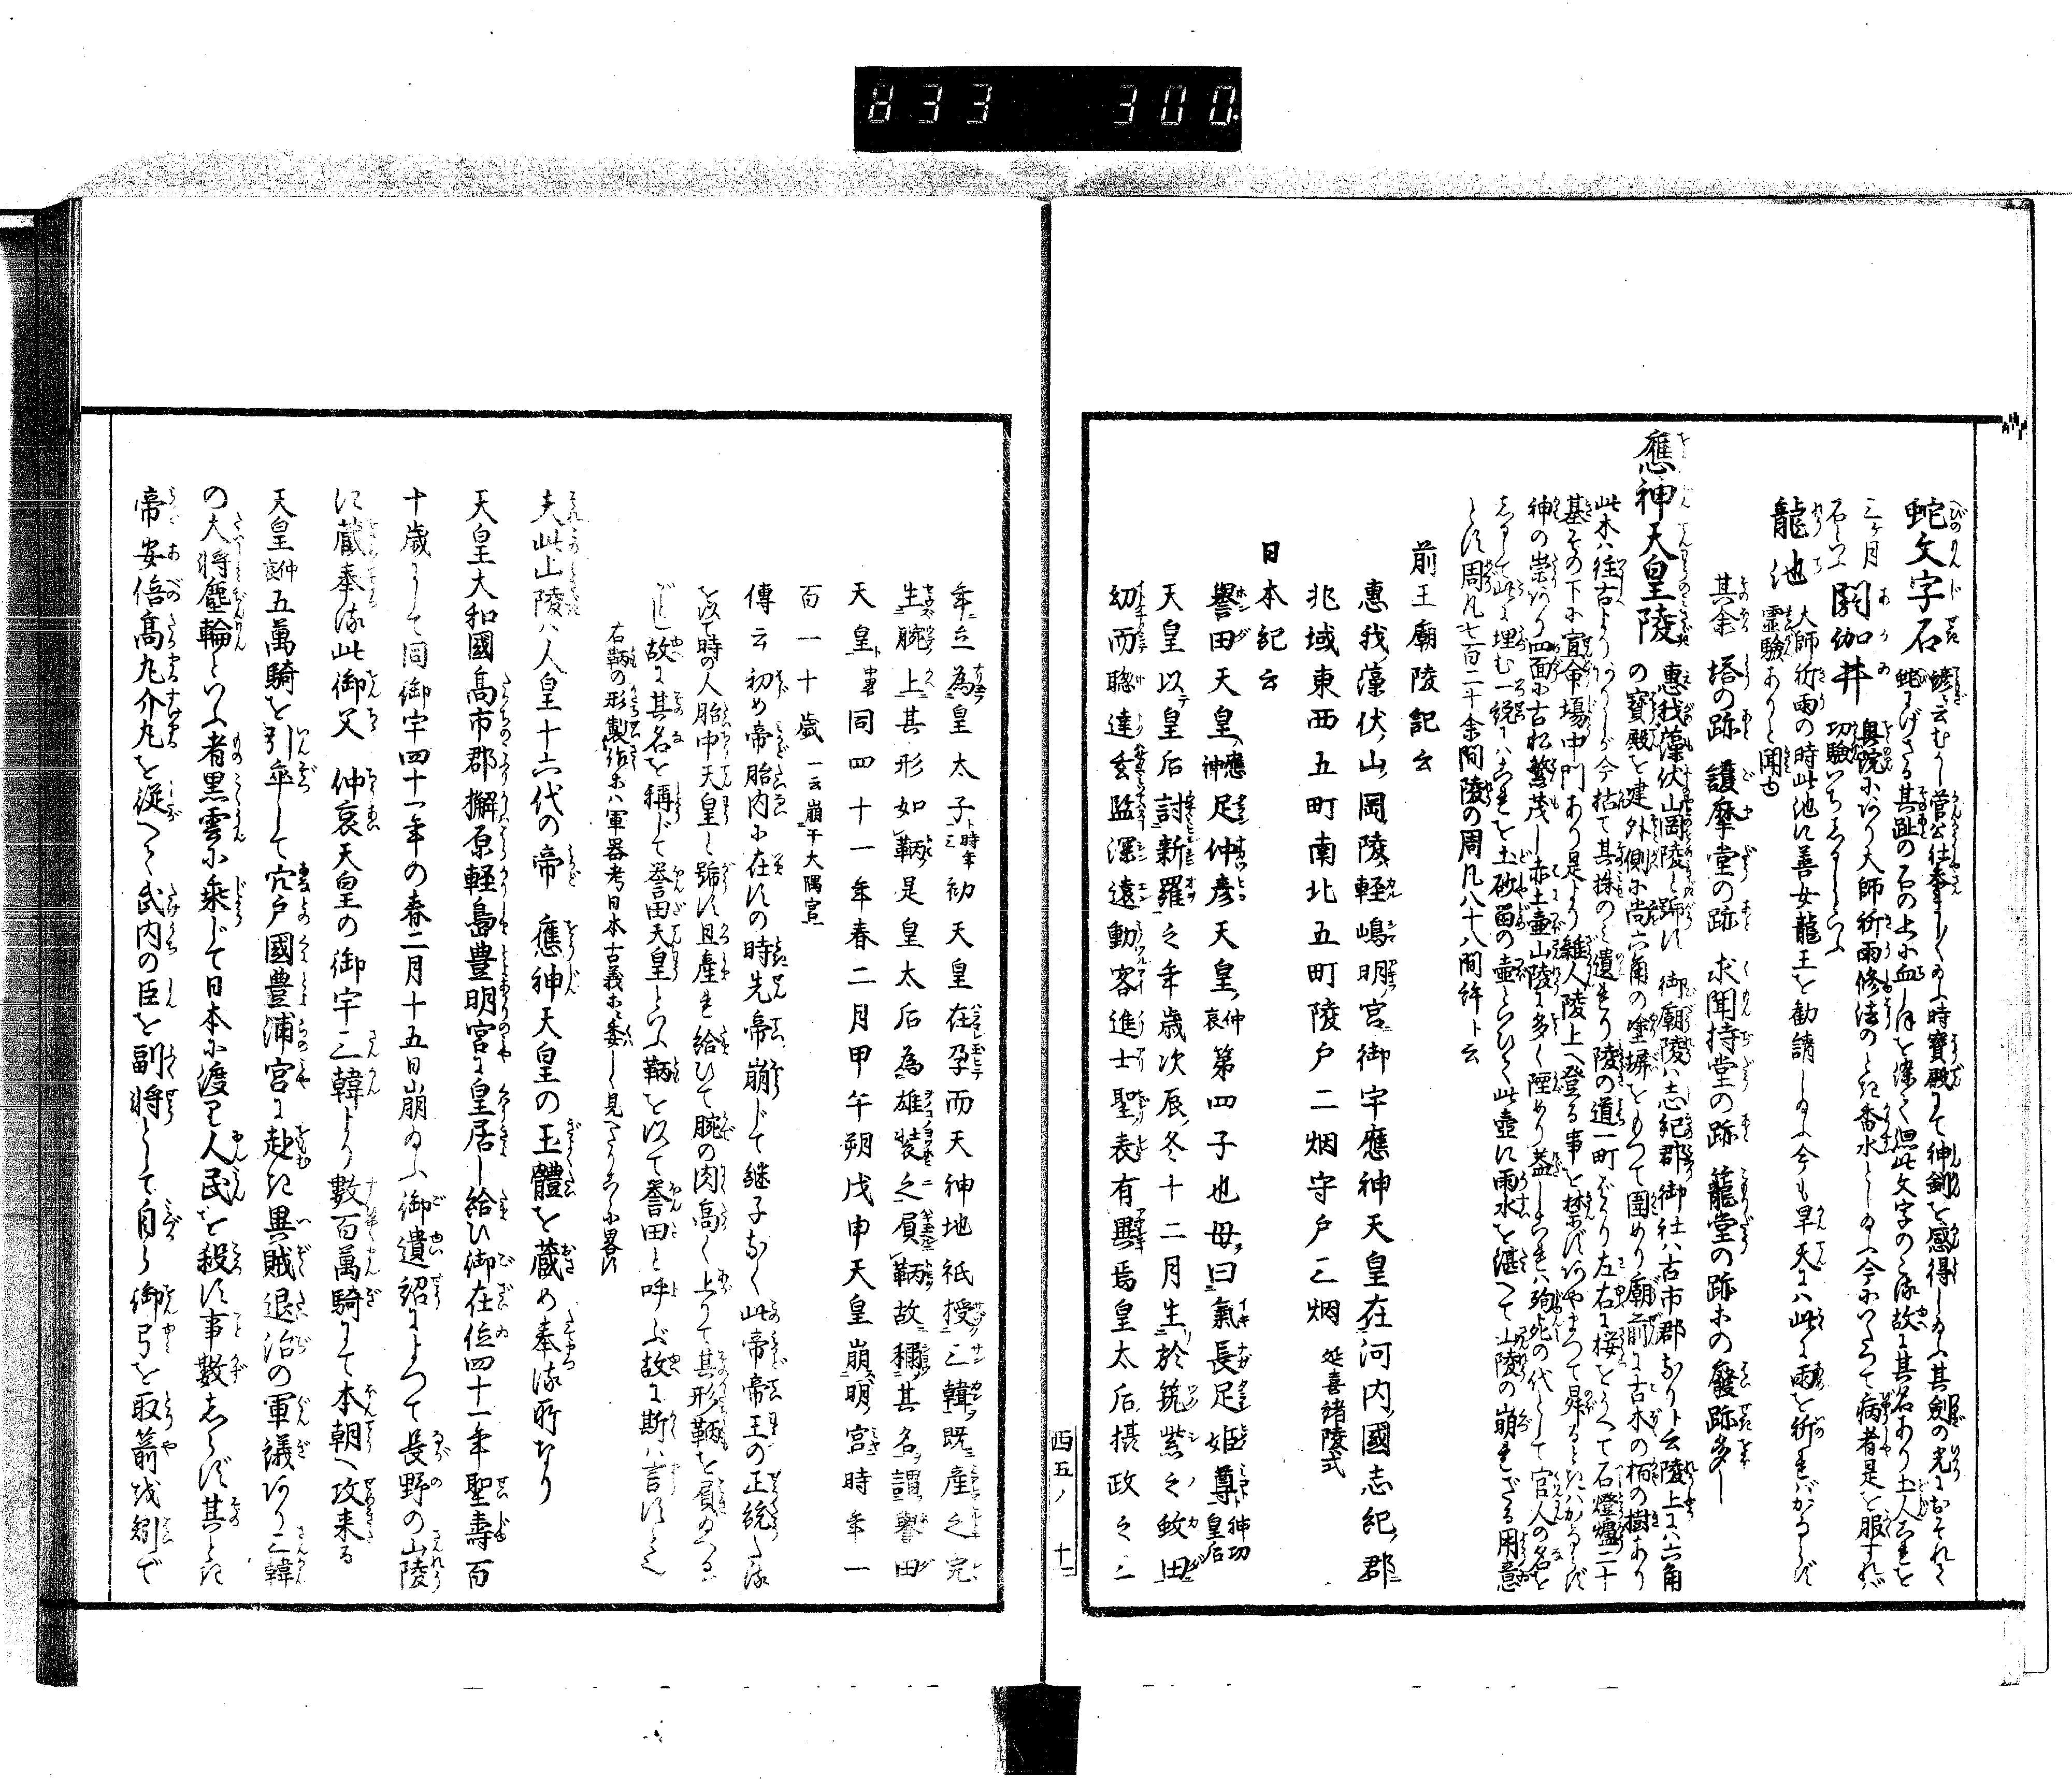 833 300
蛇文字石 縁云むかし菅公社参ましく給ふ時寶殿にて神劔を感得し給ふ其劔の光におそれて
蛇にげさる其趾の石の上に血しほを染て凹此文字のこる故に其名あり土人これを
三ケ月
石といふ
閼伽井 奥院にあり大師祈雨修法のとき香水とし給ふ今にいたつて病者是を服すれば
功驗いちじるしといふ
龍池 大師祈雨の時此池に善女龍王を勧請し給ふ今も旱天には此に雨を祈ればかならず
霊驗ありと聞ゆ
其余 塔の跡 護摩堂の跡 求聞持堂の跡 籠堂の跡等の廢跡多し
應神天皇陵 惠我藻伏山岡陵と号す 御廟陵は志紀郡御社は古市郡なりト云陵上には六角
の寶殿を建外側に尚六角の塗塀をもつて圍めり廟前に古木の栢の樹あり
此木は往古よりありしが今枯て其株のみ遺れり陵の道一町ばかり左右に桜をうへて石燈爐二十
基その下に宣命場中門あり是より雑人陵上へ登る事を禁ずあやまつて昇るときはかならず
神の崇あり四面に古松繁茂し赤土壷山陵に多く陻めり蓋しこれは殉死の代として官人の名を
しるして此に埋む一説にはこれを土砂留の壷といひて此壺に雨水を湛へて山陵の崩れざる用意
とす周凡七百二十余間陵の周凡八十八間許ト云
前王廟陵記云
惠我藻伏山岡陵軽嶋明宮御宇應神天皇在河内國志紀郡
兆域東西五町南北五町陵戸二烟守戸三烟 延喜諸陵式
日本紀云
譽田天皇應神足仲彦天皇仲哀第四子也母曰氣長足姫尊神功皇后
天皇以皇后討新羅之年歳次庚辰冬十二月生於筑紫之蚊田
幼而聰達玄監深遠動容進止聖表有異焉皇太后攝政之三
西五ノ 十二
年立為皇太子時年三初天皇在孕而天神地祇授三韓既産之完
生腕上其形如鞆是皇太后為雄装之屓鞆故稱其名謂譽田
天皇中畧同四十一年春二月甲午朔戊申天皇崩明宮時年一
百一十歳 一云崩于大隅宮
傳云初め帝胎内に在すの時先帝崩じて継子なく此帝帝王の正統たる
を以て時の人胎中天皇と号す且産れ給ひて腕の肉高く上りて其形鞆を屓給へるが
ごとし故に其名を稱じて誉田天皇といふ鞆を以て誉田と呼ぶ故に斯は言すとぞ
右鞆の形製作等は軍器考日本古義等に委しく見へたりこゝに畧す
夫此山陵は人皇十六代の帝 應神天皇の玉體を蔵め奉る所なり
天皇大和國高市郡檞原軽島豊明宮に皇居し給ひ御在位四十一年聖壽百
十歳にして同御宇四十一年の春二月十五日崩給ふ御遺紹によつて長野の山陵
に蔵奉る此御父 仲哀天皇の御宇三韓より數百萬騎にて本朝へ攻来る
天皇仲哀五萬騎を引率して穴戸國豊浦宮に赴き異賊退治の軍議あり三韓
の大将塵輪といふ者黒雲に乗じて日本に渡り人民を殺す事數しらず其とき
帝安倍髙丸介丸を従へて武内の臣を副将として自ら御弓を取箭を矧で